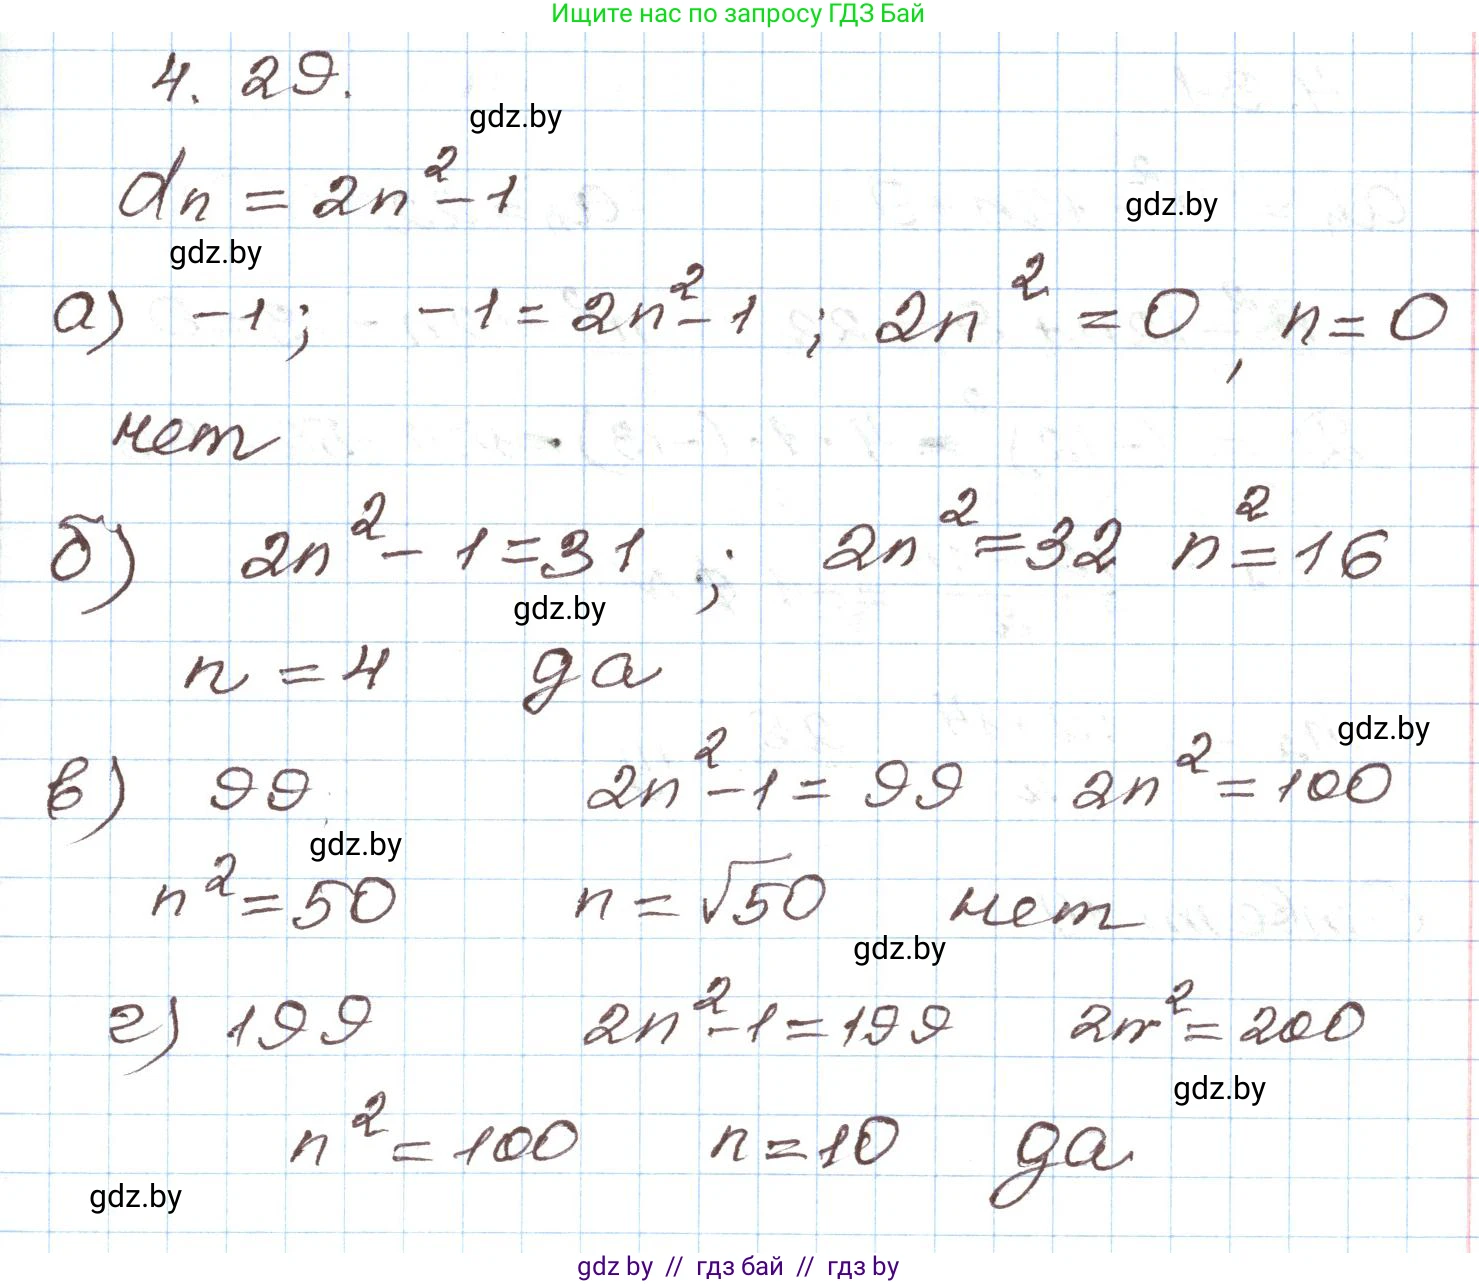 Ищите нас по запросу ГДЗ Бай
4. 29.
gdz.by
dn = 2n² - 1
gdz.by
gdz.by
а) -1; -1 = 2n² - 1 ; 2n² = 0 , n = 0
нет
б) 2n² - 1 = 31 ; 2n² = 32 n² = 16
gdz.by
n = 4 да
gdz.by
в) 99 2n² - 1 = 99 2n² = 100
gdz.by
n² = 50 n = √50 нет
gdz.by
г) 199 2n² - 1 = 199 2n² = 200
gdz.by
n² = 100 n = 10 да
gdz.by
gdz by // гдз бай // гдз by